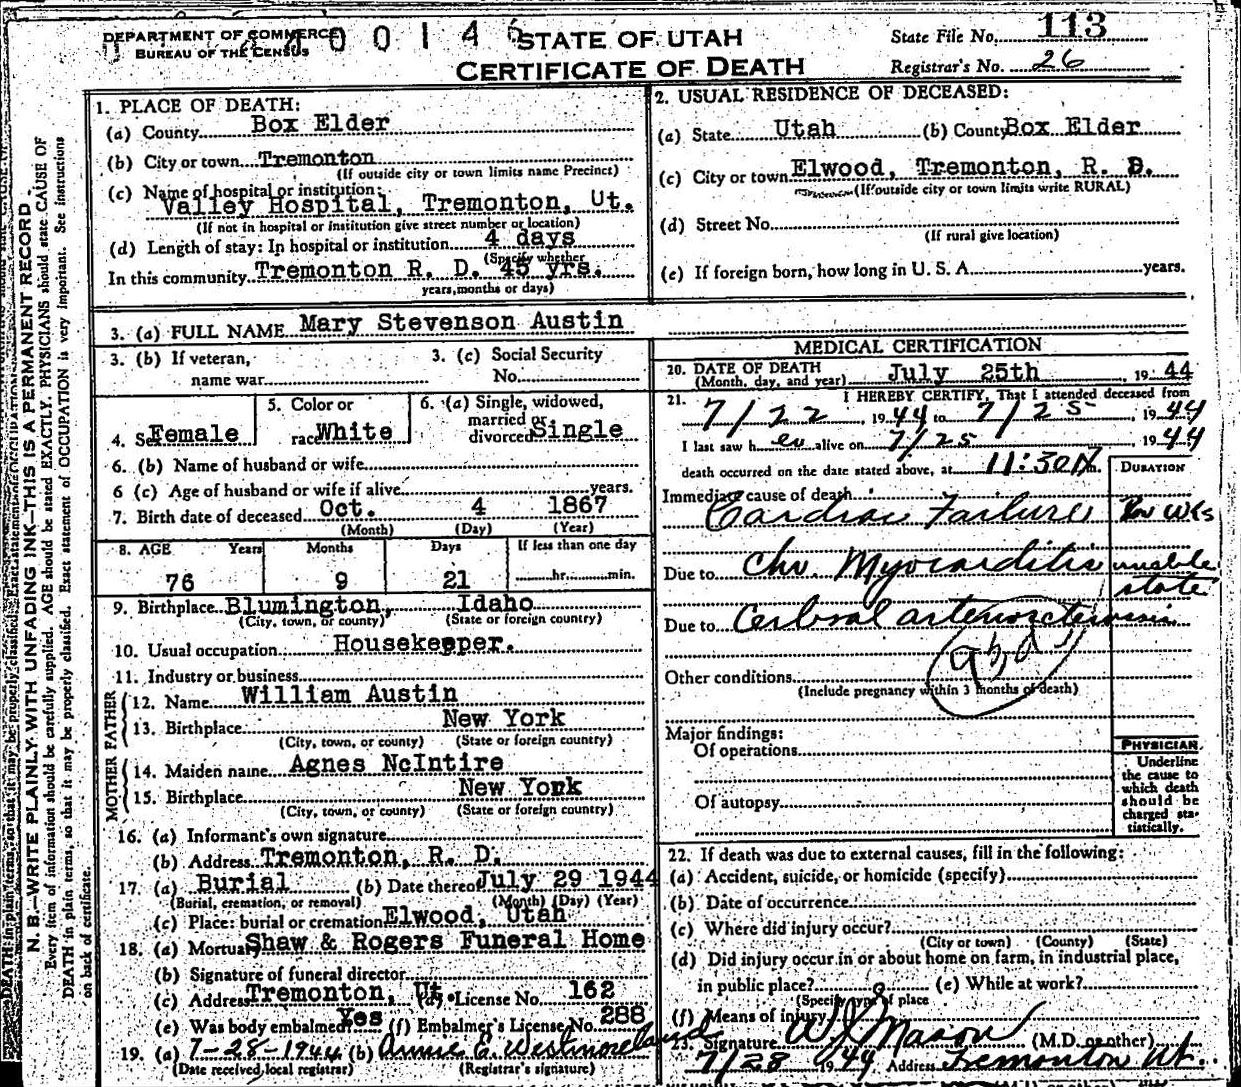 DEPARTMENT OF COMMERCE
BUREAU OF THE CENSUS
00146
STATE OF UTAH
CERTIFICATE OF DEATH
State File No. 113
Registrar's No. 26
1. PLACE OF DEATH:
(a) County Box Elder
(b) City or town Tremonton
(If outside city or town limits name Precinct)
(c) Name of hospital or institution:
Valley Hospital, Tremonton, Ut.
(If not in hospital or institution give street number or location)
(d) Length of stay: In hospital or institution 4 days
(Specify whether
In this community Tremonton R. D. 45 yrs.
years, months or days)
2. USUAL RESIDENCE OF DECEASED:
(a) State Utah (b) County Box Elder
(c) City or town Elwood, Tremonton, R. D.
(If outside city or town limits write RURAL)
(d) Street No.
(If rural give location)
(e) If foreign born, how long in U. S. A. years.
3. (a) FULL NAME Mary Stevenson Austin
3. (b) If veteran,
name war
3. (c) Social Security
No.
4. Sex Female
5. Color or
race White
6. (a) Single, widowed,
married or
divorced Single
6. (b) Name of husband or wife
6 (c) Age of husband or wife if alive years.
7. Birth date of deceased Oct. 4 1867
(Month) (Day) (Year)
8. AGE Years Months Days If less than one day
76 9 21 hr. min.
9. Birthplace Blumington, Idaho
(City, town, or county) (State or foreign country)
10. Usual occupation Housekeeper.
11. Industry or business
FATHER
12. Name William Austin
13. Birthplace New York
(City, town, or county) (State or foreign country)
MOTHER
14. Maiden name Agnes McIntire
15. Birthplace New York
(City, town, or county) (State or foreign country)
16. (a) Informant's own signature
(b) Address Tremonton, R. D.
17. (a) Burial (b) Date thereof July 29 1944
(Burial, cremation, or removal) (Month) (Day) (Year)
(c) Place: burial or cremation Elwood, Utah
18. (a) Mortuary Shaw & Rogers Funeral Home
(b) Signature of funeral director
(c) Address Tremonton, Ut. (d) License No. 162
(e) Was body embalmed Yes (f) Embalmer's License No. 288
19. (a) 7-28-1944 (b) Annie E. Westmoreland
(Date received local registrar) (Registrar's signature)
MEDICAL CERTIFICATION
20. DATE OF DEATH
(Month, day, and year) July 25th, 19 44
21. I HEREBY CERTIFY, That I attended deceased from
7/22, 19 44 to 7/25 19 44
I last saw h er alive on 7/25, 19 44
death occurred on the date stated above, at 11:30 m.
DURATION
Immediate cause of death
Cardiac Failure wks
Due to Chr. Myocarditis unable
state
Due to Cerebral arteriosclerosis
Other conditions
(Include pregnancy within 3 months of death)
Major findings:
Of operations
Of autopsy
PHYSICIAN
Underline
the cause to
which death
should be
charged sta-
tistically.
22. If death was due to external causes, fill in the following:
(a) Accident, suicide, or homicide (specify)
(b) Date of occurrence
(c) Where did injury occur?
(City or town) (County) (State)
(d) Did injury occur in or about home on farm, in industrial place,
in public place? (e) While at work?
(Specify type of place
(f) Means of injury
23. Signature W J Mason (M.D. or other)
7/28 1944 Address Tremonton Ut.
N. B.—WRITE PLAINLY WITH UNFADING INK—THIS IS A PERMANENT RECORD.
Every item of information should be carefully supplied. AGE should be stated EXACTLY. PHYSICIANS should state CAUSE OF
DEATH in plain terms, so that it may be properly classified. Exact statement of OCCUPATION is very important. See instructions
on back of certificate.